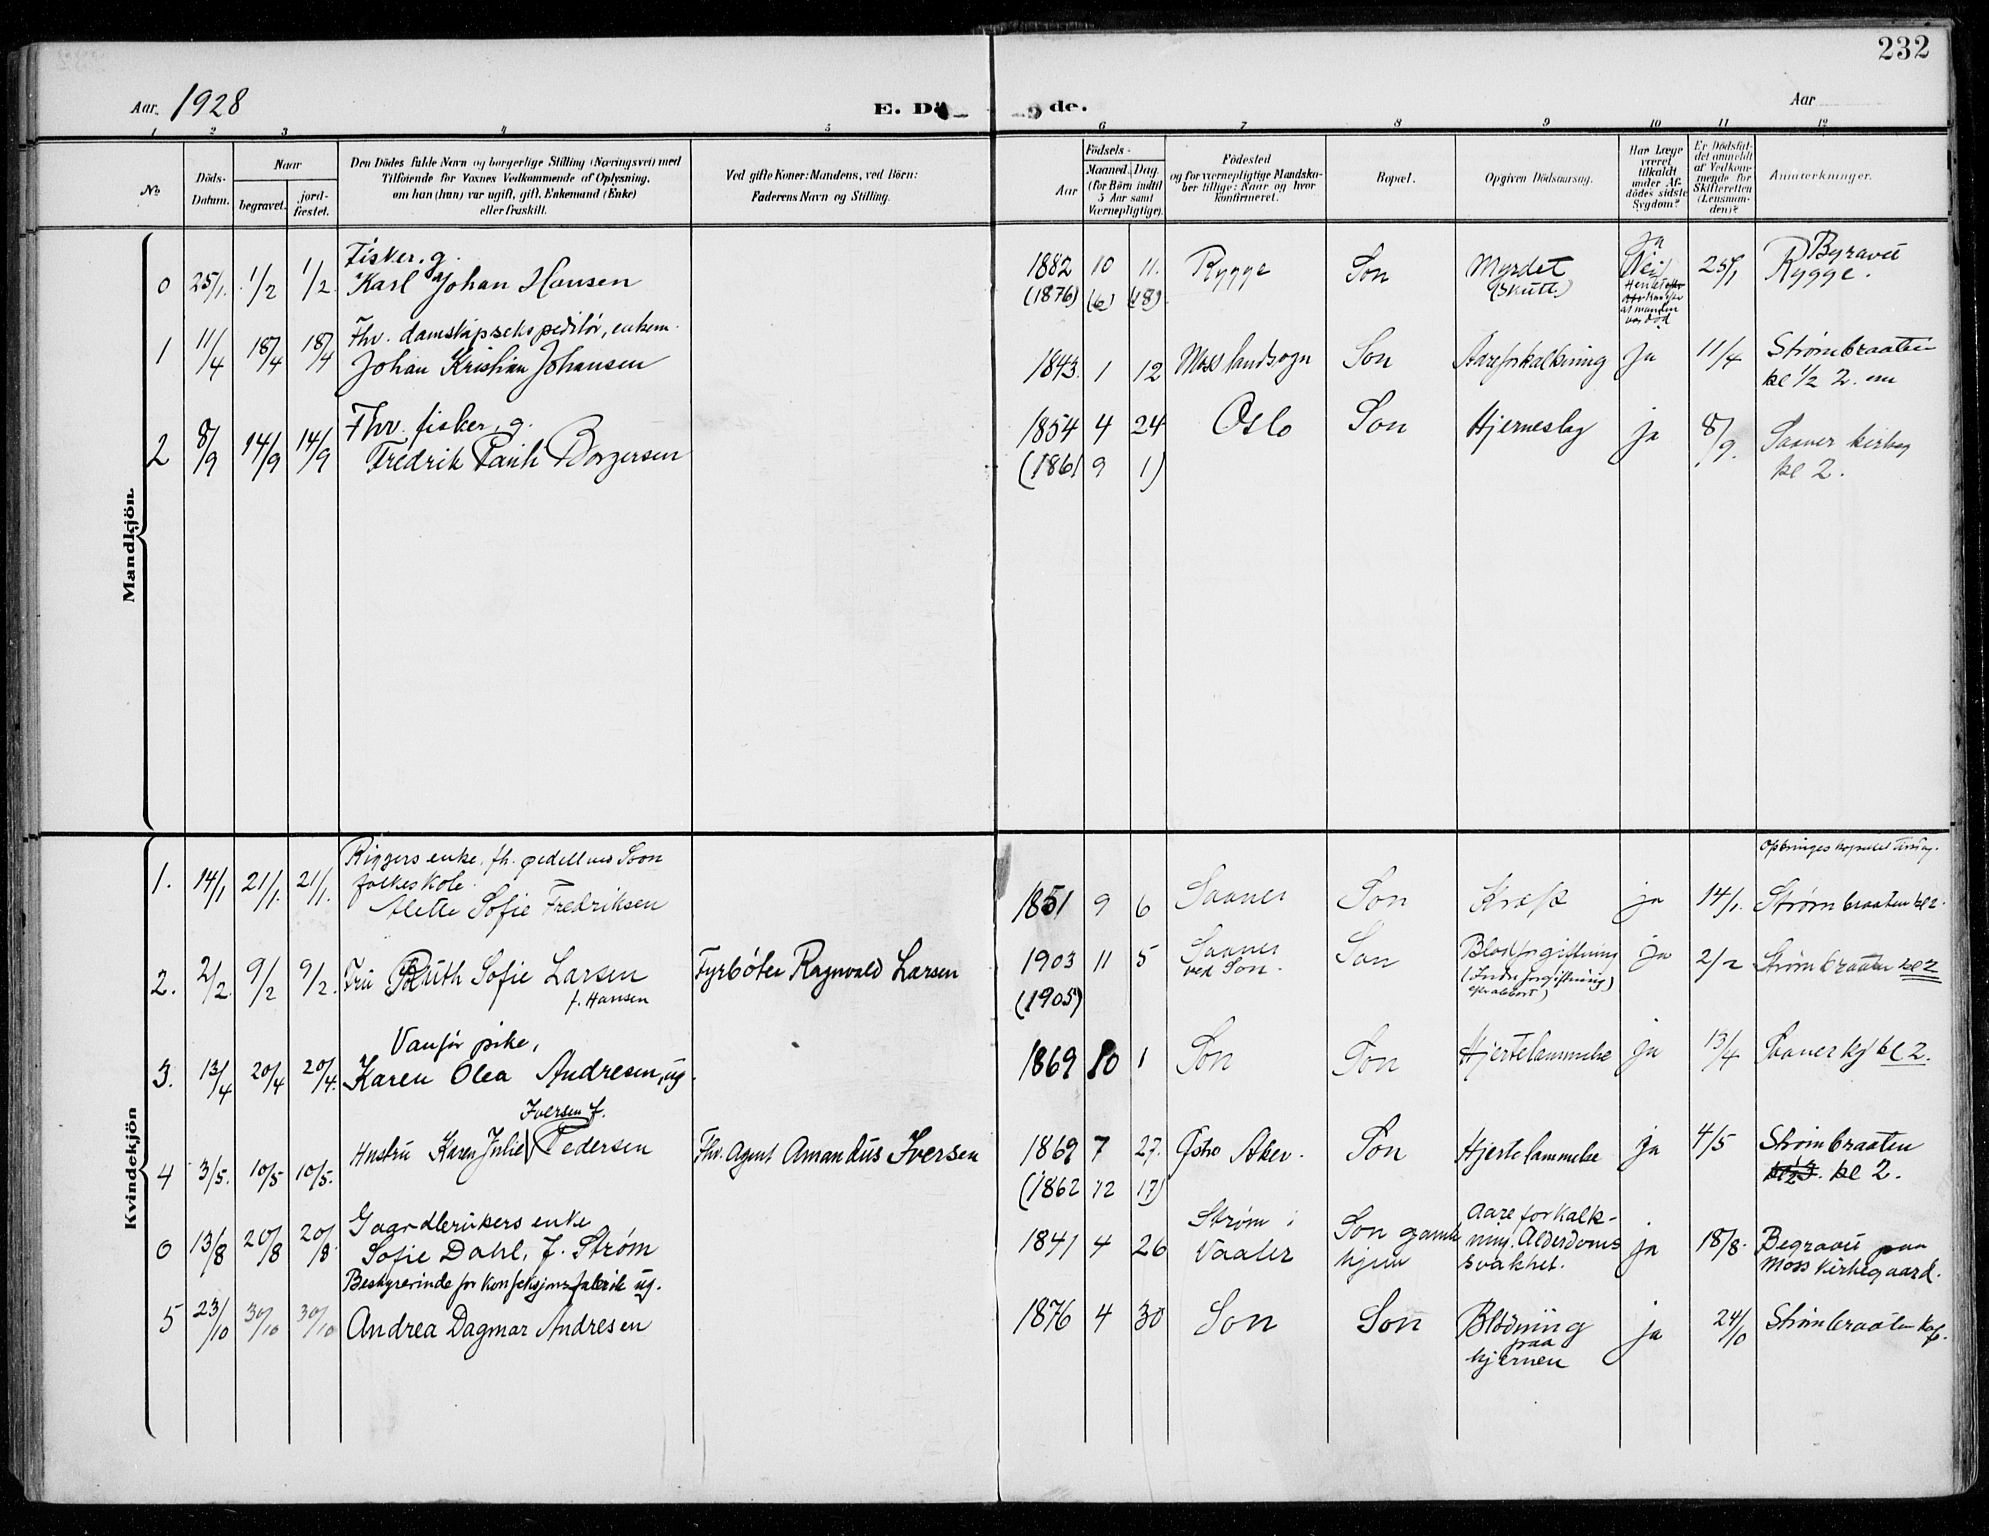 232
Aar. 1928
E. Dö de.
Aar
1 2 3 4 5 6 7 8 9 10 11 12
No.
Döds-Datum.
Naar
begravet.
jordfæstet.
Den Dödes fulde Navn og borgerlige Stilling (Næringsvei) med
Tilföiende for Voxnes Vedkommende af Oplysning,
om han (hun) var ugift, gift, Enkemand (Enke)
eller fraskilt.
Ved gifte Koner: Mandens, ved Börn:
Faderens Navn og Stilling.
Födsels-
Aar
Maaned. Dag.
(for Börn indtil
5 Aar samt
Værnepligtige).
Födested
og for værnepligtige Mandskaber tillige: Naar og hvor
konfirmeret.
Bopæl.
Opgiven Dödsaarsag.
Har Læge
været
tilkaldt
under Afdödes sidste
Sygdom?
Er Dödsfaldet anmeldt
af Vedkommende for
Skifteretten
(Lensmanden)?
Anmærkninger.
Mandkjön.
Fisker, g.
0 25/1. 1/2 1/2 Karl Johan Hansen
1882 10 11. Rygge Son Myrdet (skutt) Ja Nei 25/1 Rygge.
(1876) (6) (18)
at manden
var död
Fhv. damskipsekspeditör, enkem.
1 11/4 18/4 18/4 Johan Kristian Johansen
1843. 1 12 Moss landsogn Son Aareforkalkning Ja 11/4 Strømbraaten
kl 1/2 2. em
Fhv. fisker, g.
2 8/9 14/9 14/9 Fredrik Borgersen
1854 4 24 Oslo Son Hjerneslag ja 8/9. Saaner kirkeg
kl 2.
(1861 9 1)
Kvindekjön
Riggers enke, fh. pedell ved Soon
folkeskole.
1. 14/1 21/1. 21/1. Alette Sofie Fredriksen
1851 9 6 Saaner Son Kræft ja 14/1. Strømbraaten kl 2.
2. 2/2. 9/2 9/2. Fru Ruth Sofie Larsen
f. Hansen
Fyrböter Ragnvald Larsen
1903 11 5 Saaner
ved Son. Son Blodforgiftning ja 2/2 Strømbraaten kl 2
(1905)
Vanför pike,
3. 13/4 20/4 20/4. Karen Olea Andresen, ug.
1869 10 1 Son Son Hjertelammelse ja 13/4 Saaner kg kl 2.
Iversen f.
4 3/5. 10/5 10/5. Hustru Karen Julie Pedersen
Fhv. Agent Amandus Iversen
1869 7 27. Östre Aker. Son Hjertelammelse ja 4/5 Strømbraaten
kl 2.
(1862 12 17)
Gaardbrukers enke
0 13/8 20/8 20/8. Sofie Dahl, f. Strøm
1841 4 26 Strøm i
Vaaler Son gamle
hjem Aareforkalkning. Alderdomssvakhet. ja 18/8. Begravet paa
Moss kirkegaard.
Bestyrerinde for konfeksjonsfabrik ug.
5 23/10 30/10 30/10 Andrea Dagmar Andresen
1876 4 30 Son Son Blödning
paa
hjernen ja 24/10 Strømbraaten